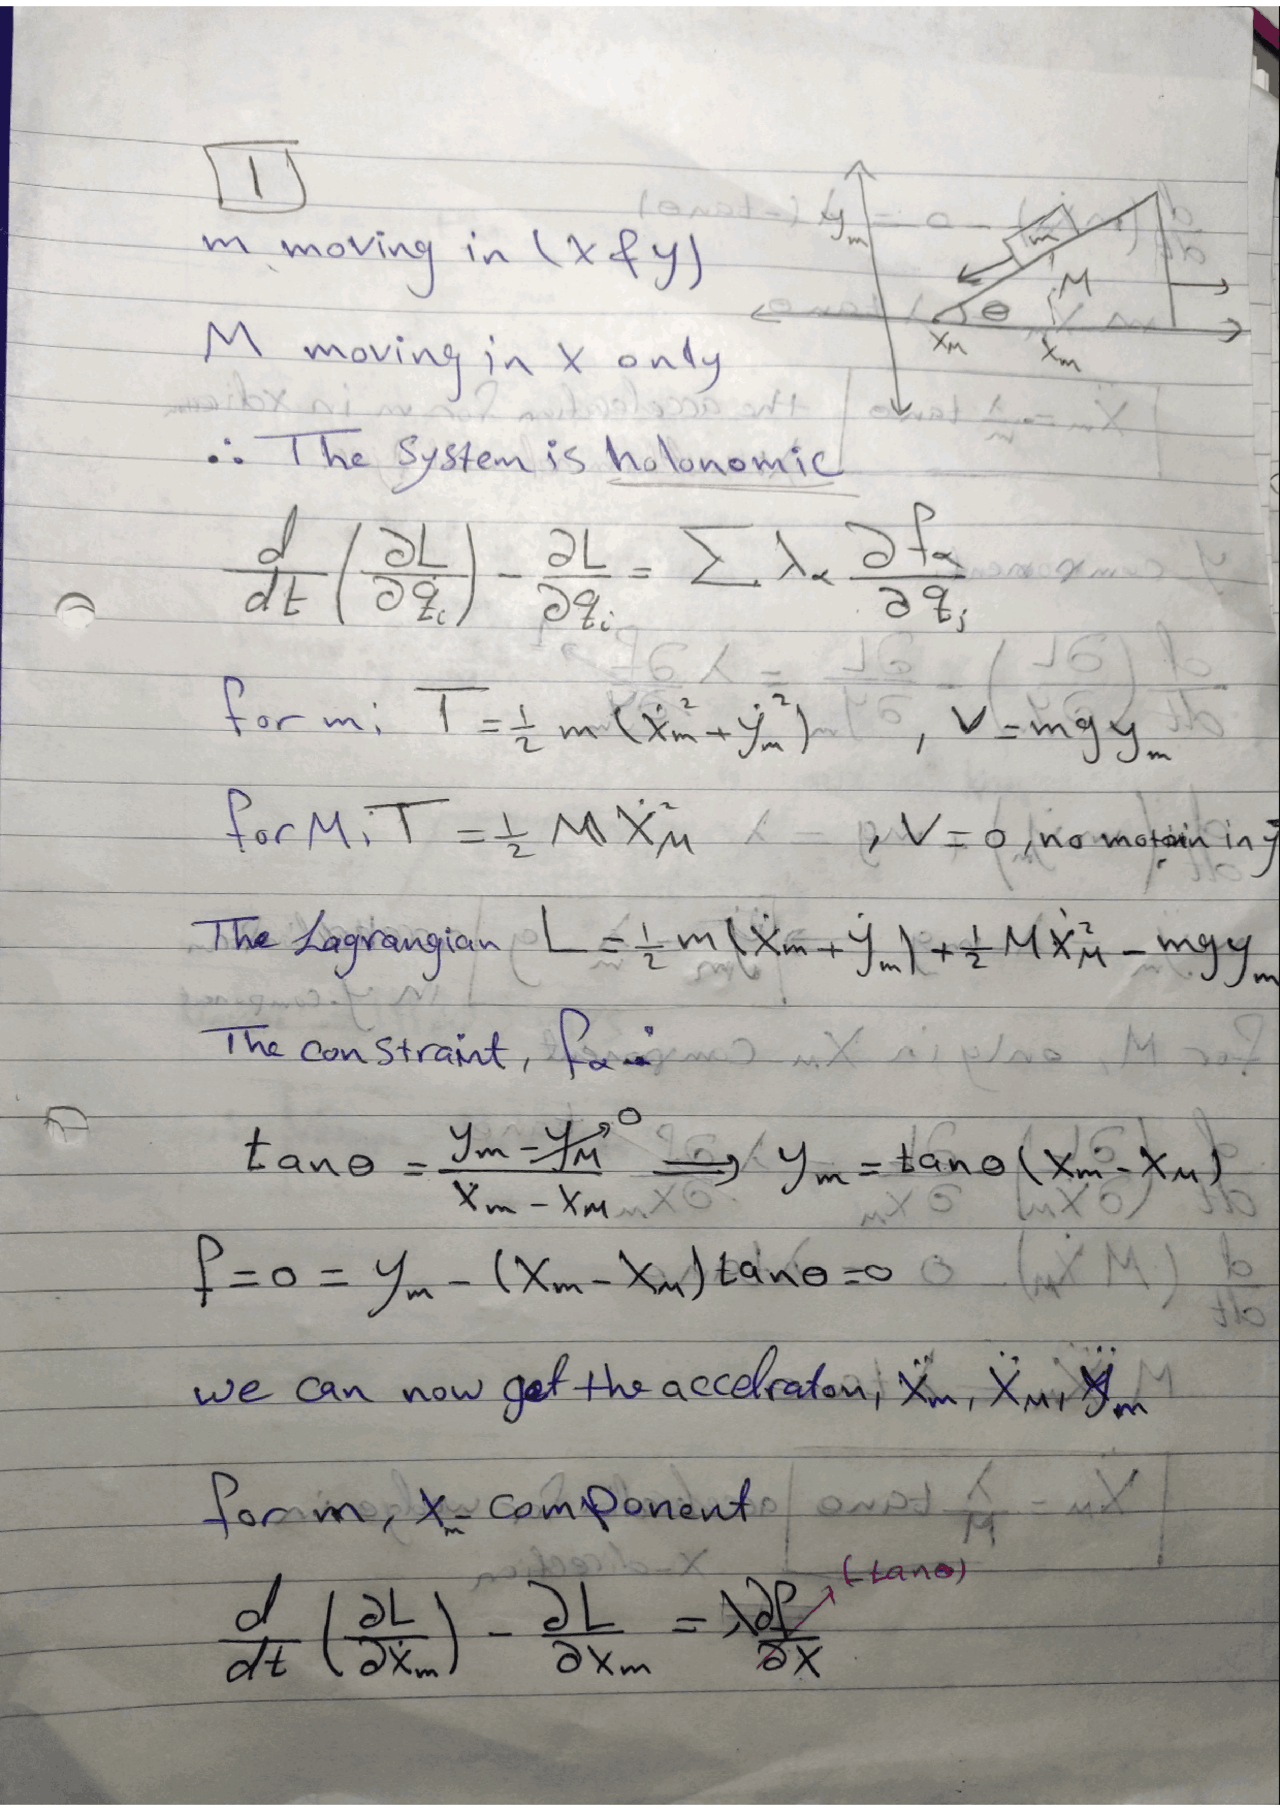 1
m moving in (x & y)
M moving in x only
∴ The system is holonomic
y_m
m
M
θ
x_M
x_m
d/dt (∂L/∂q̇_i) - ∂L/∂q_i = Σ λ_α ∂f_α/∂q_j
for m: T = 1/2 m (ẋ_m² + ẏ_m²) , V = mg y_m
for M: T = 1/2 M Ẋ_M² , V = 0, no motoin in y
The Lagrangian L = 1/2 m (ẋ_m + ẏ_m) + 1/2 M Ẋ_M² - mg y_m
The constraint, f_α:
tanθ = (y_m - y_M → 0)/(x_m - x_M) ⟹ y_m = tanθ (x_m - x_M)
f = 0 = y_m - (x_m - x_M) tanθ = 0
we can now get the accelraton, ẍ_m, ẍ_M, ÿ_m
for m, x_m - component
d/dt (∂L/∂ẋ_m) - ∂L/∂x_m = λ ∂f/∂x → (-tanθ)